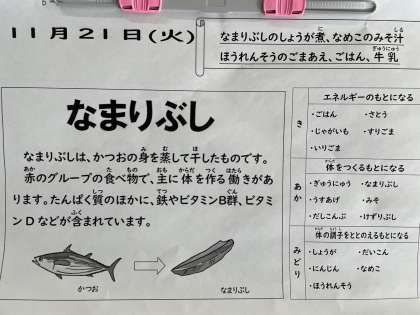 11月21日(火)
なまりぶしのしょうが煮、なめこのみそ汁
ほうれんそうのごまあえ、ごはん、牛乳
なまりぶし
なまりぶしは、かつおの身を蒸して干したものです。
赤のグループの食べ物で、主に体を作る働きがあ
ります。たんぱく質のほかに、鉄やビタミンB群、ビタミ
ンDなどが含まれています。
かつお
なまりぶし
き
エネルギーのもとになる
・ごはん ・さとう
・じゃがいも ・すりごま
・いりごま
あか
体をつくるもとになる
・ぎゅうにゅう ・なまりぶし
・うすあげ ・みそ
・だしこんぶ ・けずりぶし
みどり
体の調子をととのえるもとになる
・しょうが ・だいこん
・にんじん ・なめこ
・ほうれんそう